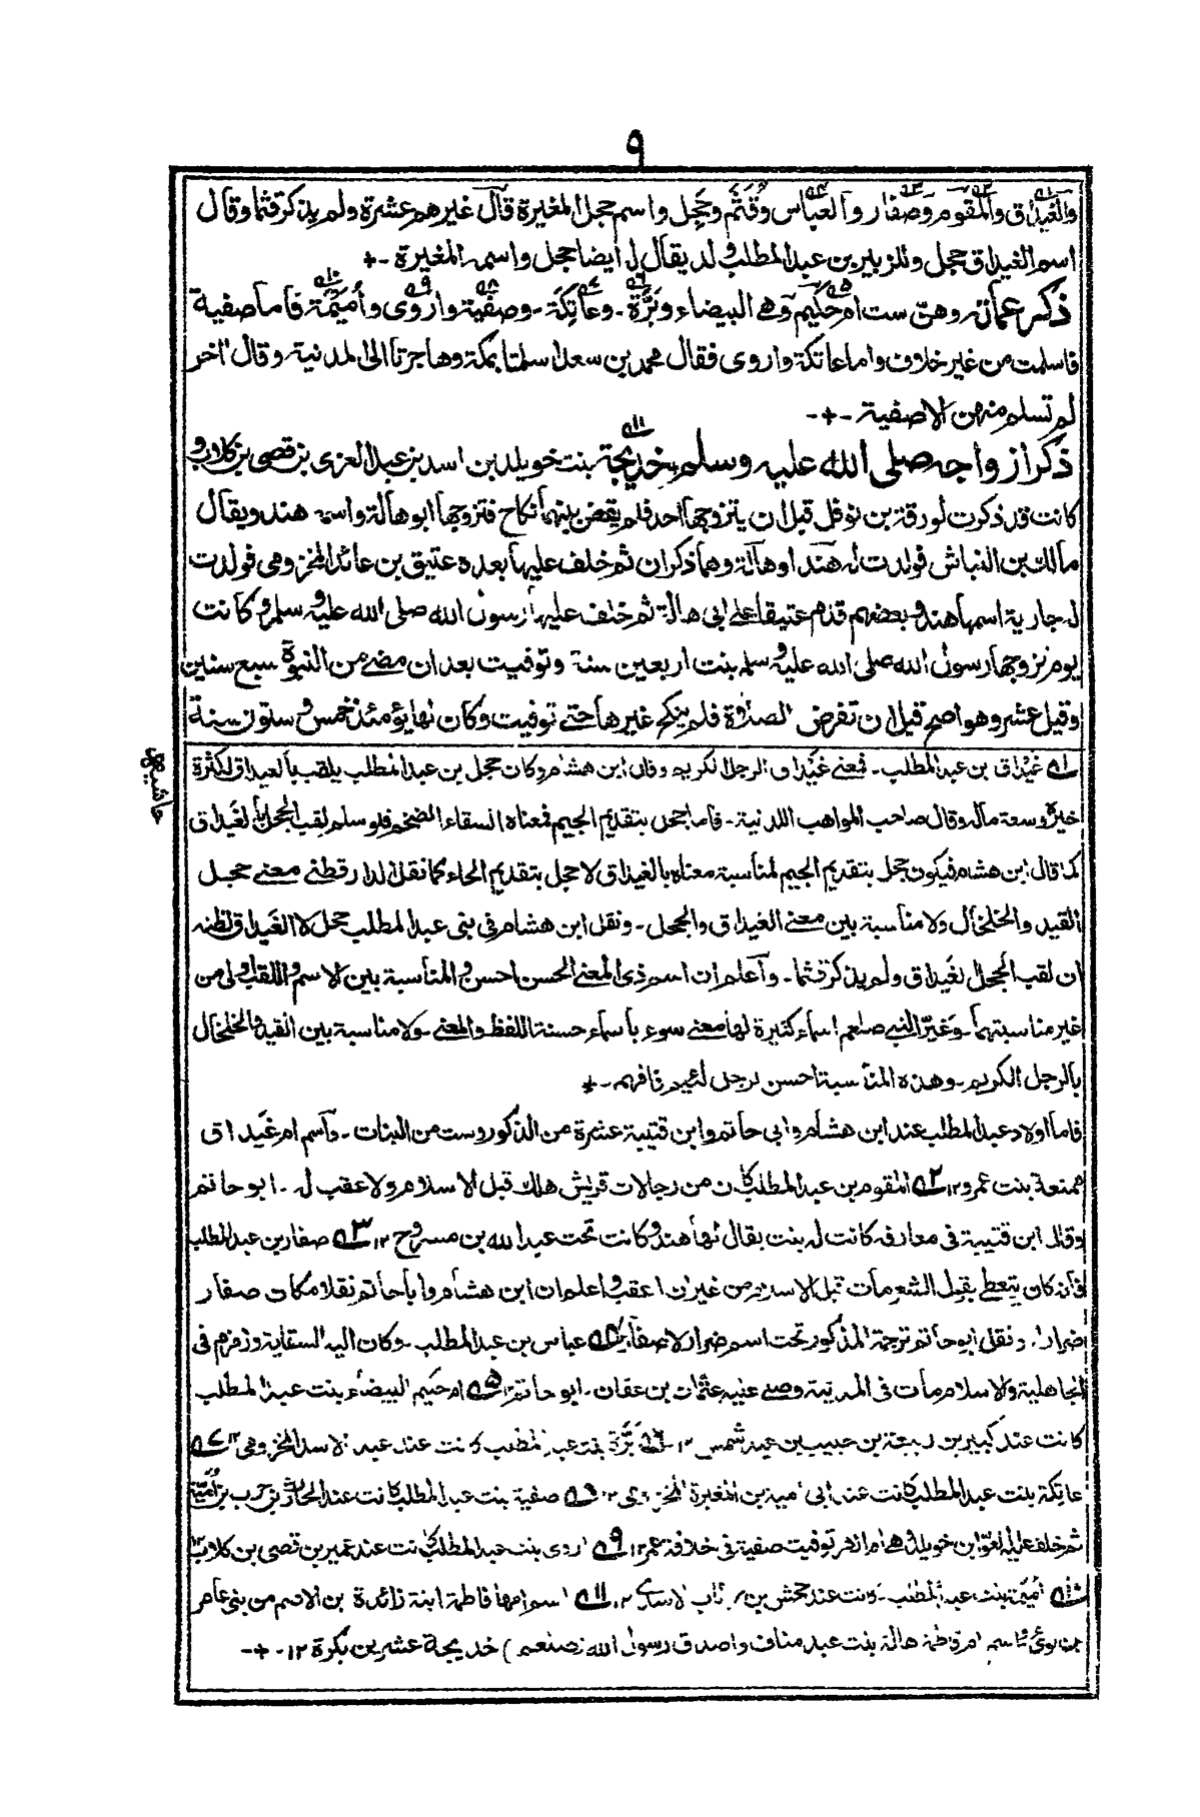 ٩
والغيداق والمقوم وصفار والعباس وقثم وحجل واسم حجل المغيرة قال غيرهم عشرة ولم يذكر قثما وقال
اسم الغيداق حجل وللزبير بن عبد المطلب ولد يقال له ايضا حجل واسمه المغيرة -+
ذكر عماته وهن ست ام حكيم وهي البيضاء وبرة - وعاتكة - وصفية واروى وأميمة فاما صفية
فاسلمت من غير خلاف واما عاتكة واروى فقال محمد بن سعد اسلمتا بمكة وهاجرتا الى المدينة وقال اخر
لم تسلم منهن الا صفية -+-
ذكر ازواجه صلى الله عليه وسلم خديجة بنت خويلد بن اسد بن عبد العزى بن قصى بن كلاب و
كانت قد ذكرت لورقة بن نوفل قبل ان يتزوجها احد فلم يقض بينهما نكاح فتزوجها ابو هالة واسمه هند ويقال
مالك بن النباش فولدت له هندا وهالة وهما ذكران ثم خلف عليها بعده عتيق بن عائذ المخزومى فولدت
له جارية اسمها هند وبعضهم قدم عتيقا على ابى هالة ثم خلف عليها رسول الله صلى الله عليه وسلم وكانت
يوم تزوجها رسول الله صلى الله عليه وسلم بنت اربعين سنة وتوفيت بعد ان مضى من النبوة سبع سنين
وقيل عشر وهو اصح قبل ان تفرض الصلوة فلم ينكح غيرها حتى توفيت وكان لها يومئذ خمس وستون سنة
حاشية
١ غيداق بن عبد المطلب - فمعنى غيداق الرجل الكريم وقال ابن هشام وكان حجل بن عبد المطلب يلقب بالغيداق لكثرة
خيره وسعة ماله وقال صاحب المواهب اللدنية - فاما جحل بتقديم الجيم فمعناه السقاء الضخم فلو سلم لقب الجحل بالغيداق
كما قال ابن هشام فيكون جحل بتقديم الجيم لمناسبة معناه بالغيداق لا حجل بتقديم الحاء كما نقل الدارقطنى معنى حجل
القيد والخلخال ولا مناسبة بين معنى الغيداق والحجل - ونقل ابن هشام فى بنى عبد المطلب حجل لا الغيداق لظنه
ان لقب الحجل لغيداق ولم يذكر قثما - واعلم ان اسم ذى المعنى الحسن احسن والمناسبة بين الاسم واللقب اولى من
غير مناسبتهما - وغير النبى صلعم اسماء كثيرة لها معنى سوء باسماء حسنة اللفظ والمعنى - ولا مناسبة بين القيد والخلخال
بالرجل الكريم - وهذه المناسبة احسن لرجل لئيم فافهم -+
فاما اولاد عبد المطلب عند ابن هشام وابى حاتم وابن قتيبة عشرة من الذكور وست من البنات - واسم ام غيداق
ممنعة بنت عمرو ١٢ ٢ المقوم بن عبد المطلب كان من رجالات قريش هلك قبل الاسلام ولا عقب له - ابو حاتم
وقال ابن قتيبة فى معارفه كانت له بنت يقال لها هند وكانت تحت عبد الله بن مسروح ١٢ ٣ صفار بن عبد المطلب
فانه كان يتعطى بقول الشعر مات قبل الاسلام من غير ان اعقب واعلم ان ابن هشام وابا حاتم نقلا مكان صفار
ضرار. ونقل ابو حاتم ترجمة المذكور تحت اسم ضرار لا صفار ٤ عباس بن عبد المطلب - وكان اليه السقاية وزمزم فى
الجاهلية والاسلام مات فى المدينة وصلى عليه عثمان بن عفان - ابو حاتم ٥ ام حكيم البيضاء بنت عبد المطلب
كانت عند كبير بن ربيعة بن حبيب بن عبد شمس ١٢ ٦ برة بنت عبد المطلب كانت عند عبد الاسد المخزومى ١٢ ٧
عاتكة بنت عبد المطلب كانت عند ابى امية بن المغيرة المخزومى ١٢ ٨ صفية بنت عبد المطلب كانت عند الحارث بن حرب بن أمية
ثم خلف عليها العوام بن خويلد وهى ام الزهر توفيت صفية فى خلافة عمر ١٢ ٩ اروى بنت عبد المطلب كانت عند عمير بن قصى بن كلاب ١٢
١٠ اميمة بنت عبد المطلب - كانت عند جحش بن رئاب الاسدى ١٢ ١١ اسم امها فاطمة ابنة زائدة بن الاصم من بنى عامر
بن لوى واسم ام فاطمة هالة بنت عبد مناف واصدق رسول الله (صلعم) خديجة عشرين بكرة ١٢ -+-